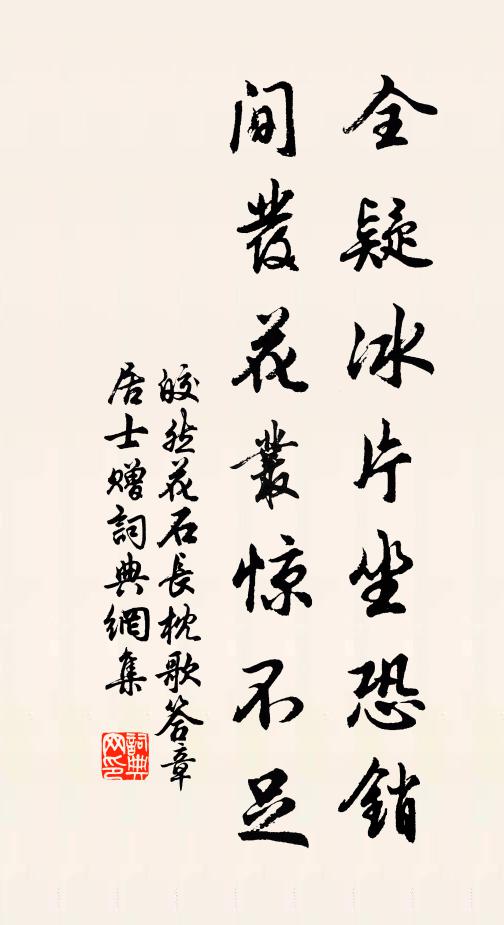 全疑冰片坐恐銷
间發花叢惊不足
皎然花石長枕歌答章
居士赠詞典網集
詞典
网印